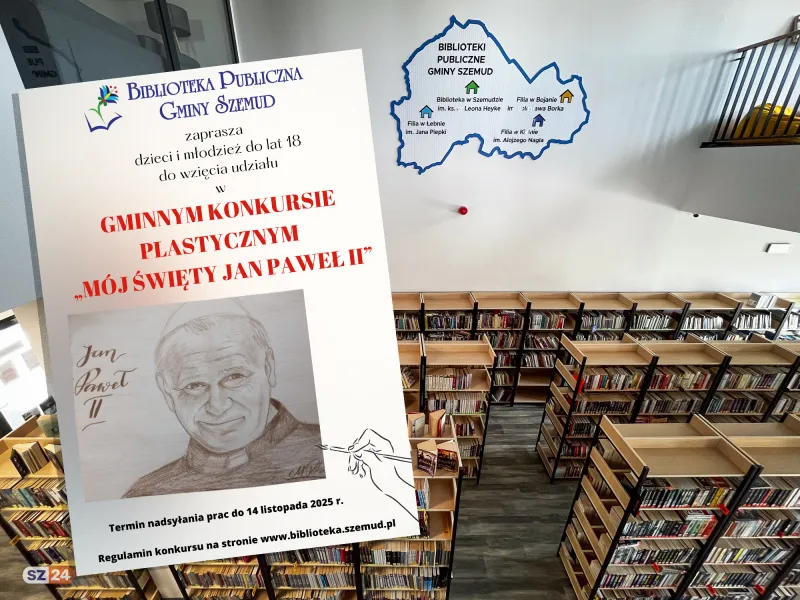 BIBLIOTEKA PUBLICZNA
GMINY SZEMUD
zaprasza
dzieci i młodzież do lat 18
do wzięcia udziału
w
GMINNYM KONKURSIE
PLASTYCZNYM
„MÓJ ŚWIĘTY JAN PAWEŁ II”
Jan
Paweł
II
Termin nadsyłania prac do 14 listopada 2025 r.
Regulamin konkursu na stronie www.biblioteka.szemud.pl
BIBLIOTEKI
PUBLICZNE
GMINY SZEMUD
Biblioteka w Szemudzie
im. ks. Leona Heyke
Filia w Bojanie
Borka
Filia w Łebnie
im. Jana Piepki
Filia w
im. Alojzego Nagla
SZ24